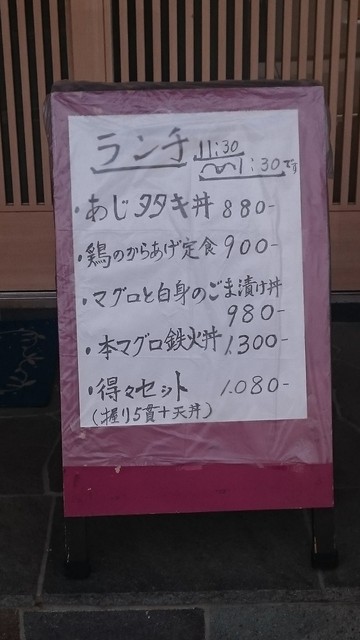 ランチ 11:30
〜1:30です
・あじタタキ丼 880-
・鶏のからあげ定食 900-
・マグロと白身のごま漬け丼
980-
・本マグロ鉄火丼 1.300-
・得々セット 1.080-
(握り5貫+天丼)